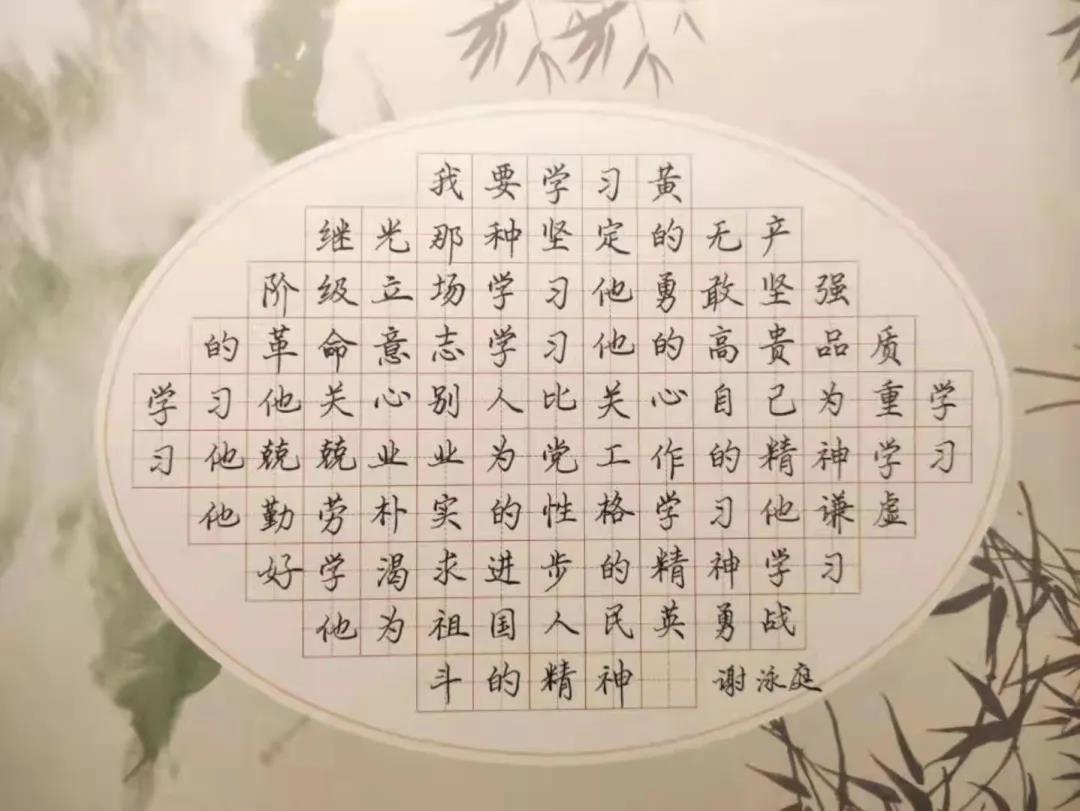 我要学习黄
继光那种坚定的无产
阶级立场学习他勇敢坚强
的革命意志学习他的高贵品质
学习他关心别人比关心自己为重学
习他兢兢业业为党工作的精神学习
他勤劳朴实的性格学习他谦虚
好学渴求进步的精神学习
他为祖国人民英勇战
斗的精神 谢泳庭